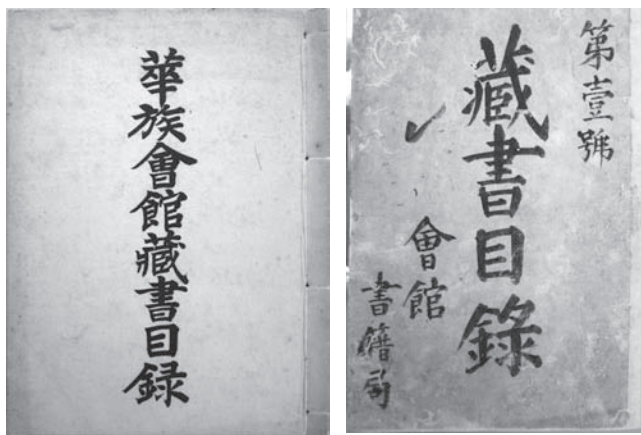 華族會館藏書目録
第壹號
藏書目錄
會館
書籍局